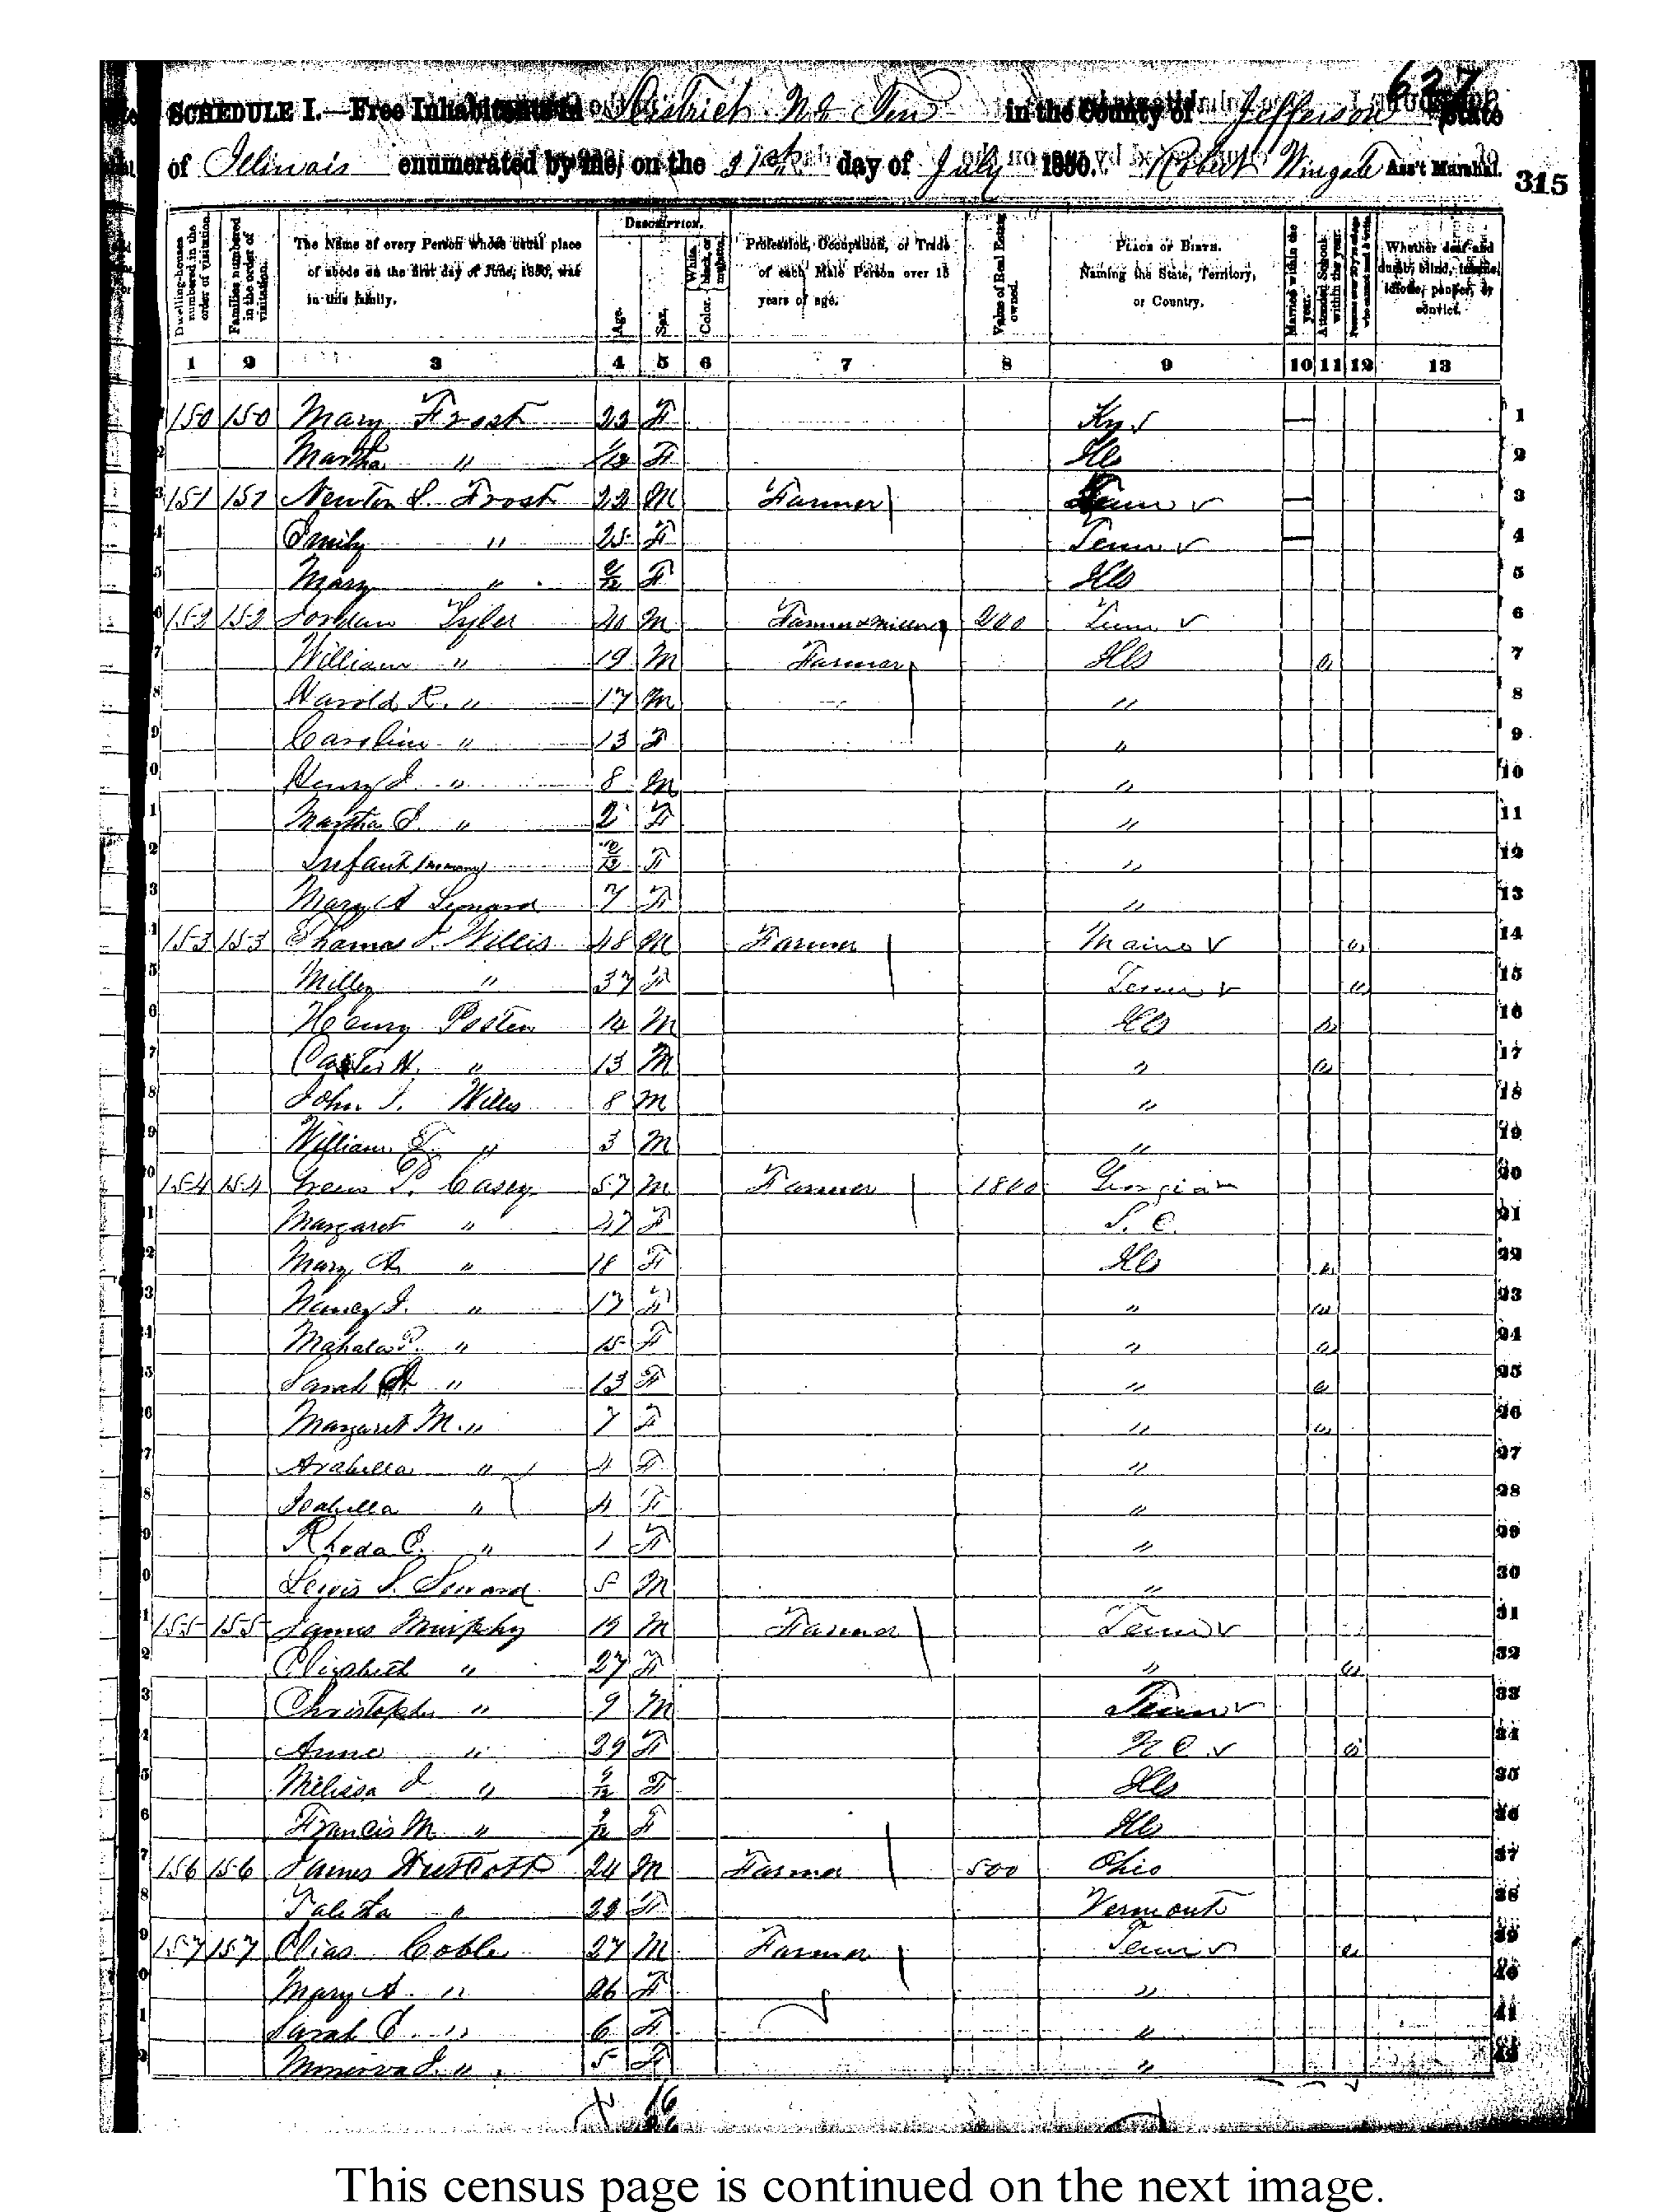 627
SCHEDULE I.—Free Inhabitants in District No Ten in the County of Jefferson State
of Illinois enumerated by me, on the 31st day of July 1850. Robert Wingate Ass't Marshal. 315
Dwelling-houses numbered in the order of visitation.
Families numbered in the order of visitation.
The Name of every Person whose usual place of abode on the first day of June, 1850, was in this family.
Description.
Age.
Sex.
Color. White, black, or mulatto.
Profession, Occupation, or Trade of each Male Person over 15 years of age.
Value of Real Estate owned.
Place of Birth. Naming the State, Territory, or Country.
Married within the year.
Attended School within the year.
Persons over 20 y'rs of age who cannot read & write.
Whether deaf and dumb, blind, insane, idiotic, pauper, or convict.
1 2 3 4 5 6 7 8 9 10 11 12 13
150 150 Mary Frost 22 F Ky 1
Martha " F Ills 2
3 151 151 Newton S. Frost 22 M Farmer Tenn 3
4 Emily " 25 F Tenn 4
5 Mary " F Ills 5
6 152 152 Jordan Tyler 40 M Farmer & Miller 200 Tenn 6
7 William " 19 M Farmer Ills 7
8 Harold R. " 17 M " 8
9 Caroline " 13 F " 9
0 Henry J. " 8 M " 10
1 Martha J. " 2 F " 11
2 Infant (no name) F " 12
3 Mary A Lenard 7 F " 13
153 153 Thomas J. Willis 48 M Farmer Maine 14
5 Milley " 37 F Tenn 15
6 Henry Posten 14 M Ills 16
7 Carter H. " 13 M " 17
8 John J. Willis 8 M " 18
9 William T. " 3 M " 19
0 154 154 Green P. Casey 57 M Farmer 1800 Georgia 20
1 Margaret " 47 F S. C. 21
2 Mary A. " 18 F Ills 22
3 Nancy J. " 17 F " 23
4 Mahala P. " 15 F " 24
5 Sarah " 13 F " 25
6 Margaret M. " 7 F " 26
7 Arabella " 4 F " 27
8 Isabella " 4 F " 28
9 Rhoda C. " 1 F " 29
0 Lewis S. 5 M " 30
1 155 155 James Murphy 19 M Farmer Tenn 31
2 Elizabeth " 27 F " 32
3 Christopher " 9 M Tenn 33
Anna " 29 F N C. 34
5 Melissa J " F Ills 35
6 Francis M " F Ills 36
7 156 156 James 24 M Farmer 500 Ohio 37
8 Talitha " 22 F Vermont 38
9 157 157 Elias Coble 27 M Farmer Tenn 39
0 Mary A. " 26 F " 40
1 Sarah E. " 6 F " 41
Minerva J. " 5 F " 42
16
This census page is continued on the next image.